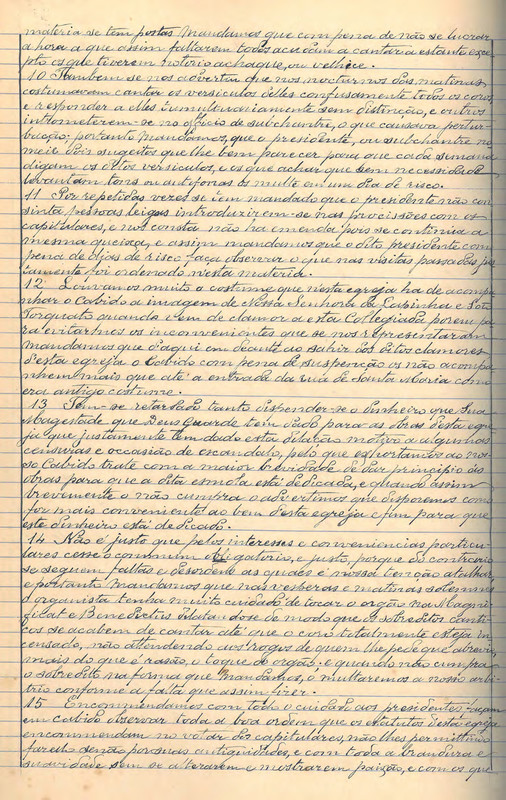 materia se tem postas mandamos que com pena de não se lucrar
a hora a que assim faltarem todos acudam a cantar a estante exce-
pto os que tiverem notorio achaque, ou velhice.
10 Tambem se nos advertiu que nos nocturnos das matinas
costumavam cantar os versiculos delles confusamente todos os coros,
e responder a elles tumultuariamente sem distinção, e outros
intrometerem-se no officio de subchantre, o que causava pertur-
bação; portanto mandamos, que o presidente, ou subchantre no-
meie dois sugeitos que lhe bem parecer para que cada semana
digam os ditos versiculos, e os que achar que sem necessidade
levantam tons ou antifonas os multe em um dia de risco.
11 Por repetidas vezes se tem mandado que o presidente não con-
sinta, pessoas leigas introduzirem-se nas procissões com os
capitulares, e nos consta não ha emenda pois se continua a
mesma queixa, e assim mandamos que o dito presidente com
pena de dias de risco faça observar o que nas visitas passadas
foi ordenado nesta materia.
12 Louvamos muito o costume que nesta egreja ha de acompa-
nhar o Cabido a imagem de Nossa Senhora da Lapinha e São
Torquato quando vem de clamor a esta Collegiada porem pa-
ra evitarmos os inconvenientes que se nos representaram
mandamos que d'aqui em deante ao sahir dos ditos clamores
d'esta egreja o Cabido com pena de suspenção os não acompa-
nhem mais que até a entrada da rua de Santa Maria com
era antigo costume.
13 Tem-se retardado tanto dispender-se o dinheiro que Sua
Magestade que Deus guarde tem dado para as obras desta egre-
ja que justamente tem dado esta dilação motivo a algumas
censuras e occasião de escandalo, pelo que exhortamos ao nos-
so Cabido trate com a maior brevidade de dar principio ás
obras para que a dita esmola está dedicada, e quando assim
brevemente o não cumpra o advertimos que disporemos como
fôr mais conveniente ao bem desta egreja e fim para que
este dinheiro está dedicado.
14 Não é justo que pelos interesses e conveniencias particu-
lares cesse o commum obrigatorio, e justo, porque do contrario
se seguem faltas e desordens as quaes é nossa tenção atalhar,
e portanto mandamos que nas vesperas e matinas solemnes
o organista tenha muito cuidado de tocar o orgão na Magni-
ficat e Benedictus dilatando-se de modo que os sobreditos canti-
cos se acabem de cantar até que o coro totalmente esteja in-
censado, não attendendo aos rogos de quem lhe pede que abrevie
mais do que é rasão, o toque do orgão; e quando não cumpra
o sobredito na forma que mandamos, o multaremos a nosso arbi-
trio conforme a falta que assim fizer.
15 Encommendamos com todo o cuidado aos presidentes façam
em Cabido observar toda a boa ordem que os Estatutos desta egreja
encommendam no votar dos capitulares, não lhes permittindo
fazel-o senão por suas antiguidades, e com toda a brandura e
suavidade sem se alterarem e mostrarem paixão, e com os que